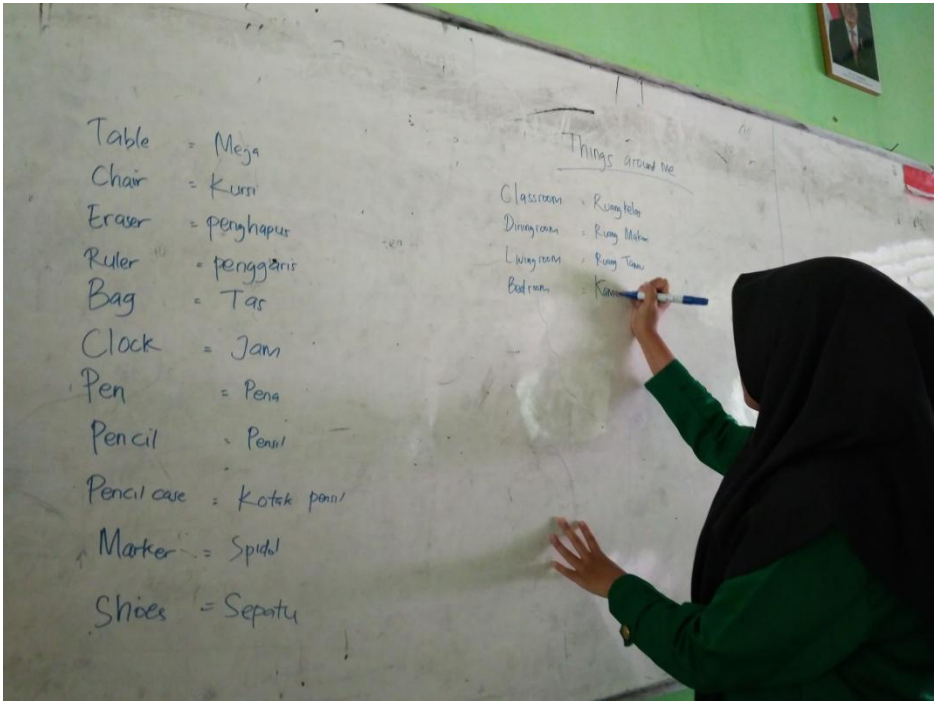 Table = Meja
Chair = Kursi
Eraser = penghapus
Ruler = penggaris
Bag = Tas
Clock = Jam
Pen = Pena
Pencil = Pensil
Pencil case = Kotak pensil
Marker = Spidol
Shoes = Sepatu
Things around me
Classroom = Ruang kelas
Diningroom = Ruang Makan
Livingroom = Ruang Tamu
Bedroom = Kam